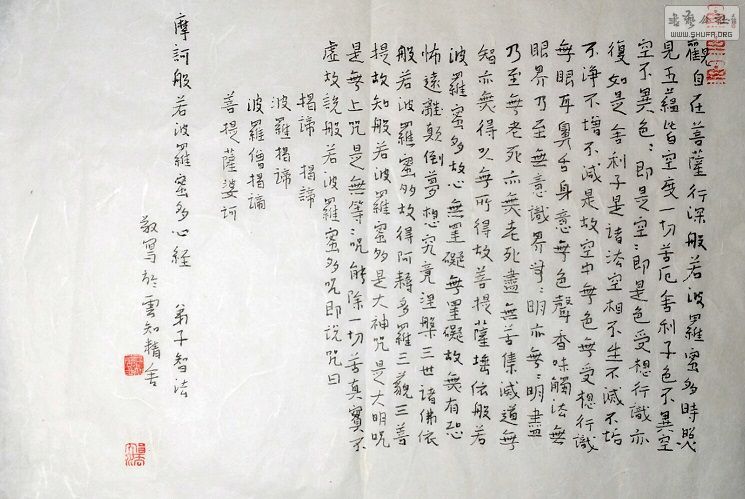 觀自在菩薩行深般若波羅蜜多時照
見五蘊皆空度一切苦厄舍利子色不異空
空不異色々即是空々即是色受想行識亦
復如是舍利子是諸法空相不生不滅不垢
不淨不增不減是故空中無色無受想行識
無眼耳鼻舌身意無色聲香味觸法無
眼界乃至無意識界無々明亦無々明盡
乃至無老死亦無老死盡無苦集滅道無
智亦無得以無所得故菩提薩埵依般若
波羅蜜多故心無罣礙無罣礙故無有恐
怖遠離顛倒夢想究竟涅槃三世諸佛依
般若波羅蜜多故得阿耨多羅三藐三菩
提故知般若波羅蜜多是大神咒是大明咒
是無上咒是無等々咒能除一切苦真實不
虛故說般若波羅蜜多咒即說咒曰
揭諦 揭諦
波羅揭諦
波羅僧揭諦
菩提薩婆訶
摩訶般若波羅蜜多心經 弟子智法
敬寫於雲知精舍
书艺公社
WWW.SHUFA.ORG